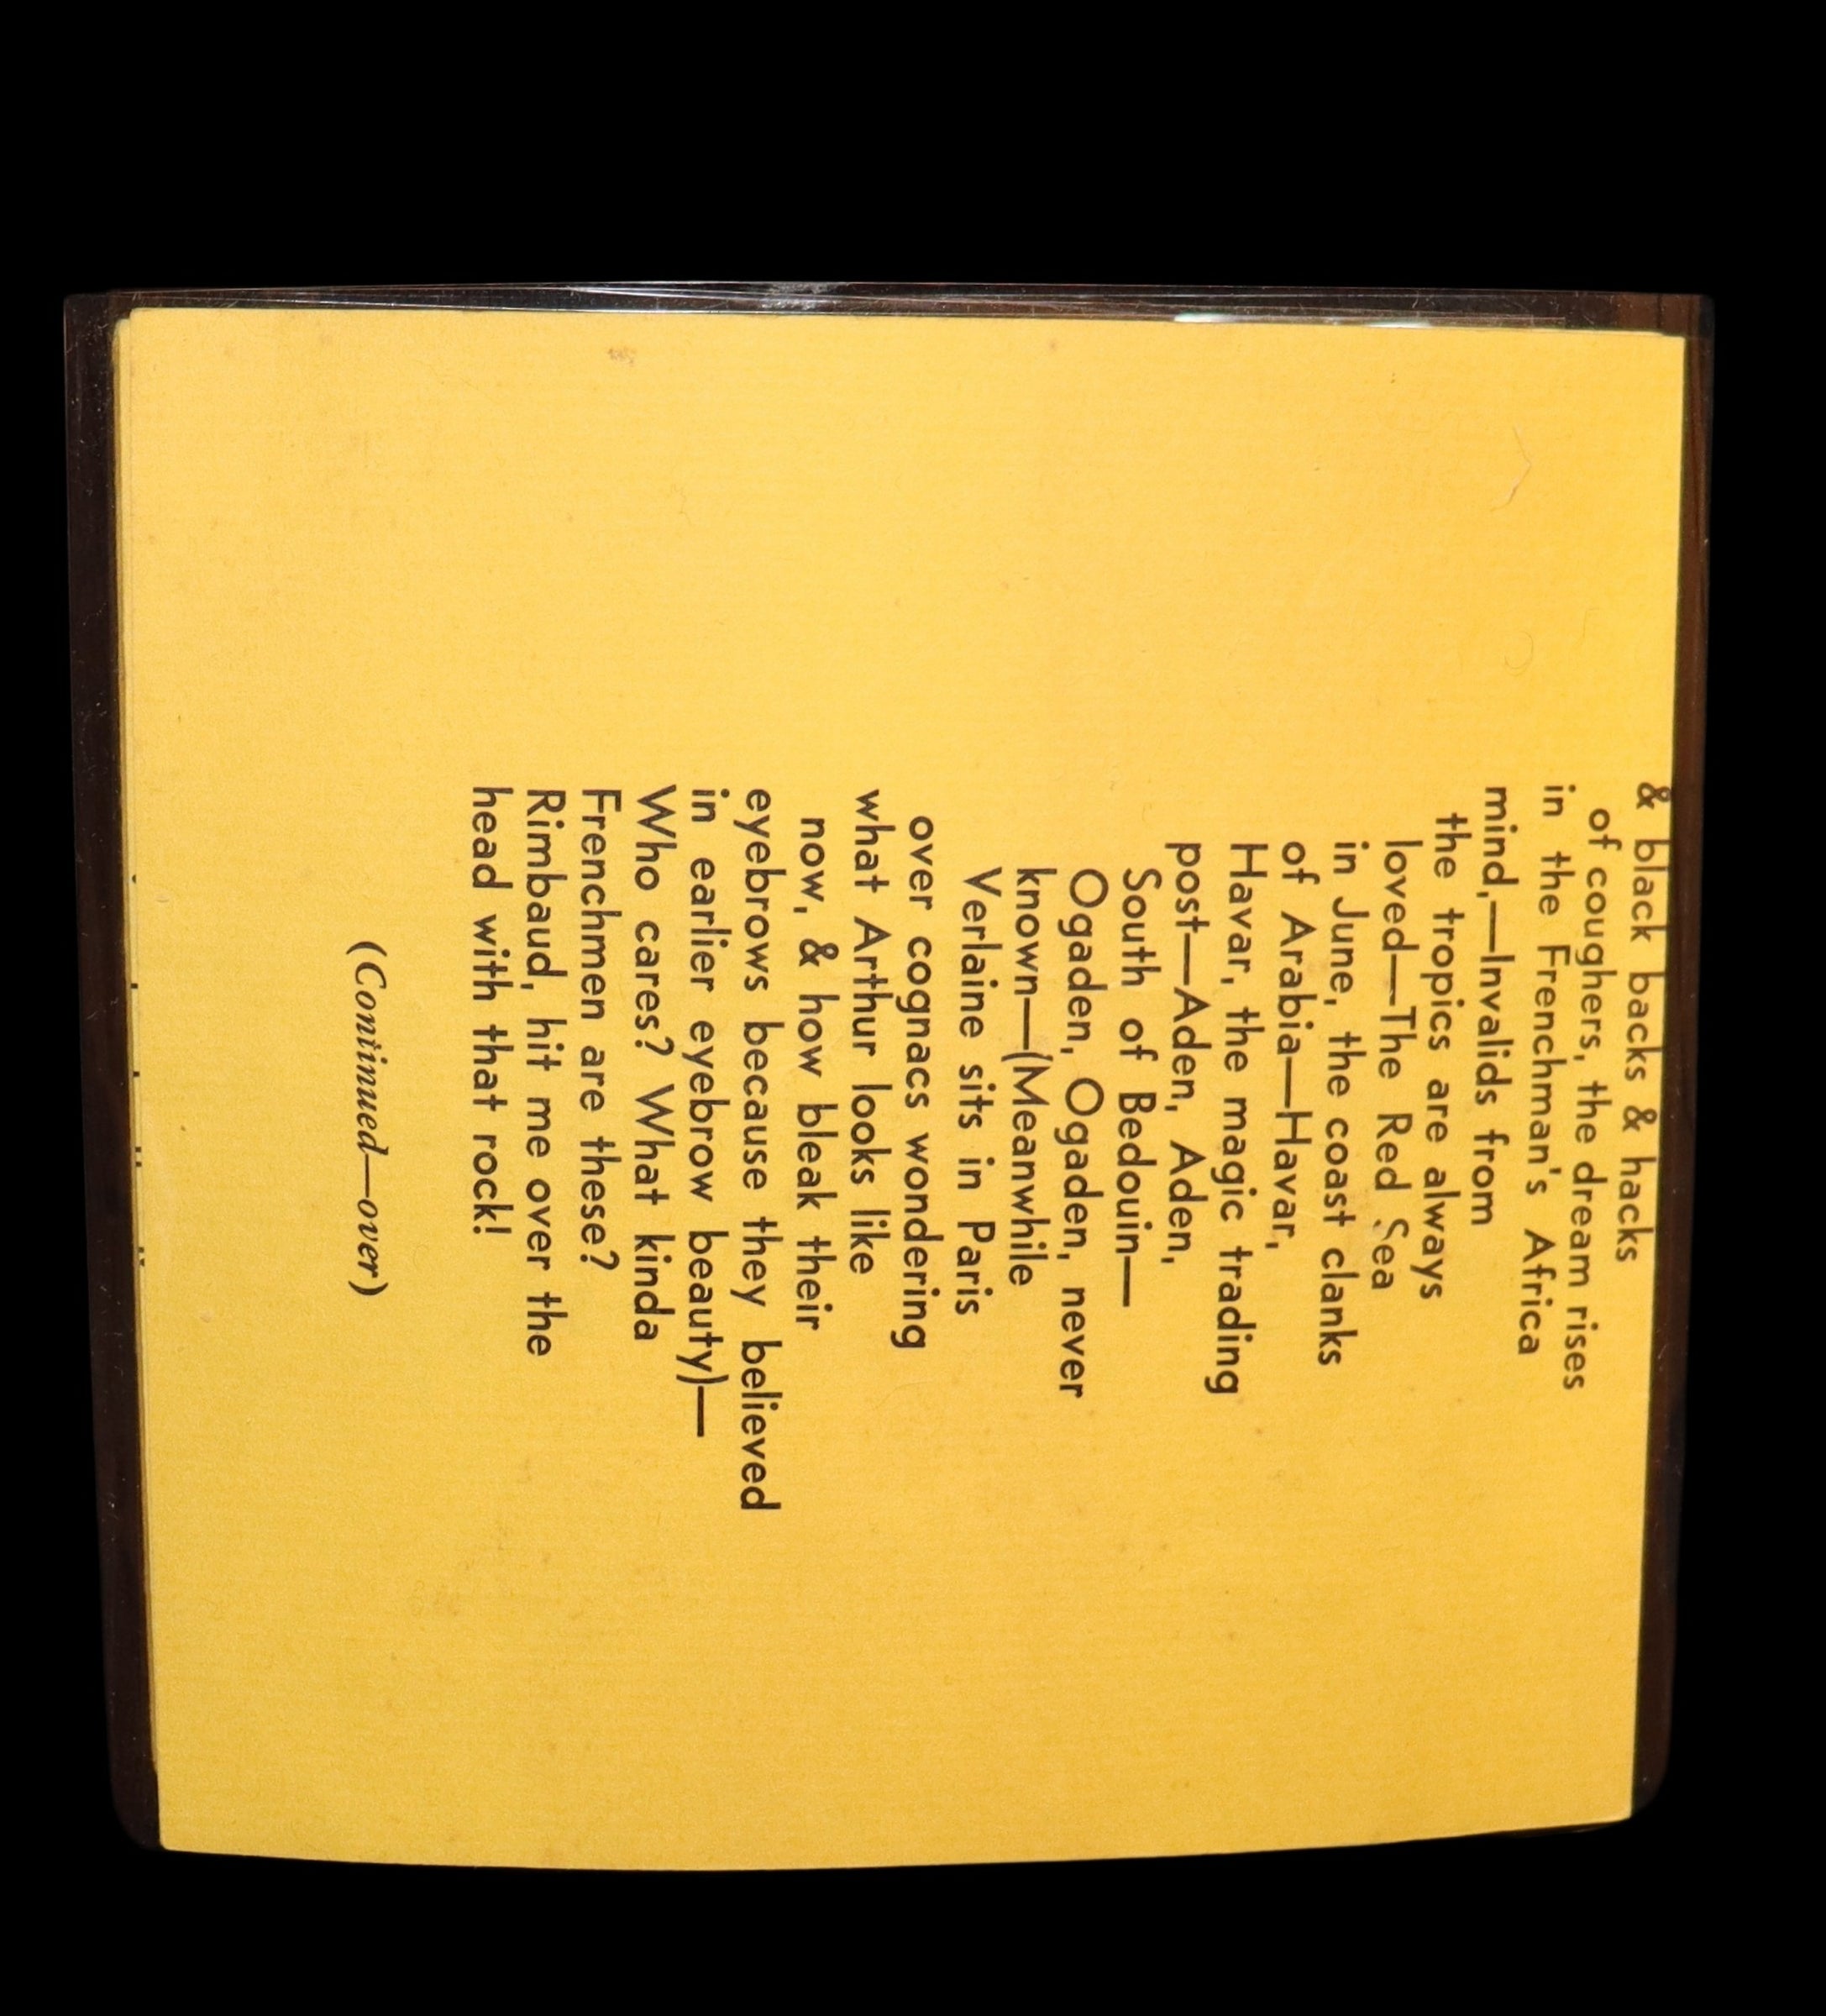 & black backs & hacks
of coughers, the dream rises
in the Frenchman's Africa
mind,—Invalids from
the tropics are always
loved—The Red Sea
in June, the coast clanks
of Arabia—Havar,
Havar, the magic trading
post—Aden, Aden,
South of Bedouin—
Ogaden, Ogaden, never
known—(Meanwhile
Verlaine sits in Paris
over cognacs wondering
what Arthur looks like
now, & how bleak their
eyebrows because they believed
in earlier eyebrow beauty)—
Who cares? What kinda
Frenchmen are these?
Rimbaud, hit me over the
head with that rock!
(Continued—over)